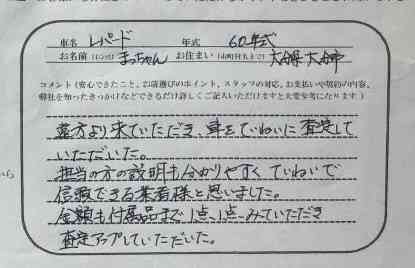 車名 レパード 年式 60年式
お名前(ｲﾆｼｬﾙ) まっちゃん お住まい(市町村名まで) 大分県大分市
コメント(安心できたこと、お店選びのポイント、スタッフの対応、お支払いや契約の内容、
弊社を知ったきっかけなどできるだけ詳しくご記入いただけますと大変参考になります)
遠方より来ていただき、車をていねいに査定して
いただいた。
担当の方の説明も分かりやすく ていねいで
信頼できる業者様と思いました。
金額も付属品まで1点、1点みていただき
査定アップしていただいた。